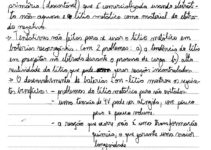 primária (descartável) que é comercializada usando eletról-
não aquoso e lítio metálico como material do eletro-
do negativo.
→ Tentativas não feitas para se usar o lítio metálico em
baterias recarregáveis. Com 2 problemas: a) a tendência do lítio
em precipitar no eletrodo durante o processo de carga. b) alta
reatividade do lítio que pode gerar reações incontroladas.
→ O desenvolvimento de baterias com lítio melhora os seguin-
tes benefícios: - problemas do lítio metálico podem ser evitados
- uma tensão de 4V pode ser atingida, com pouco
peso e pouco volume
- a reação que ocorre não é uma transformação
química, o que garante uma maior
longevidade